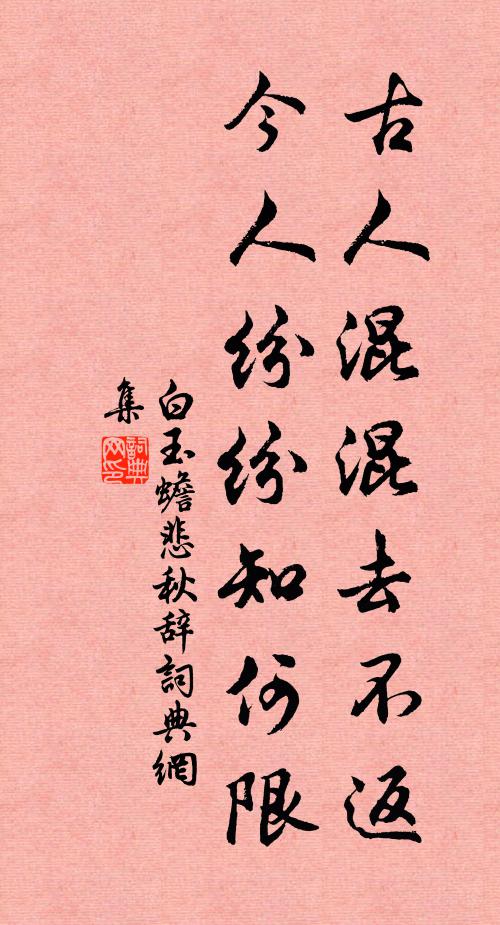 古人混混去不返
今人纷纷知何限
白玉蟾悲秋辞詞典網
集
詞典网印